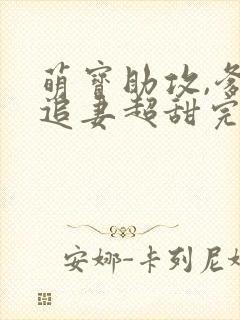 萌寳助攻,爹
追妻超甜完
安娜-卡列尼娜